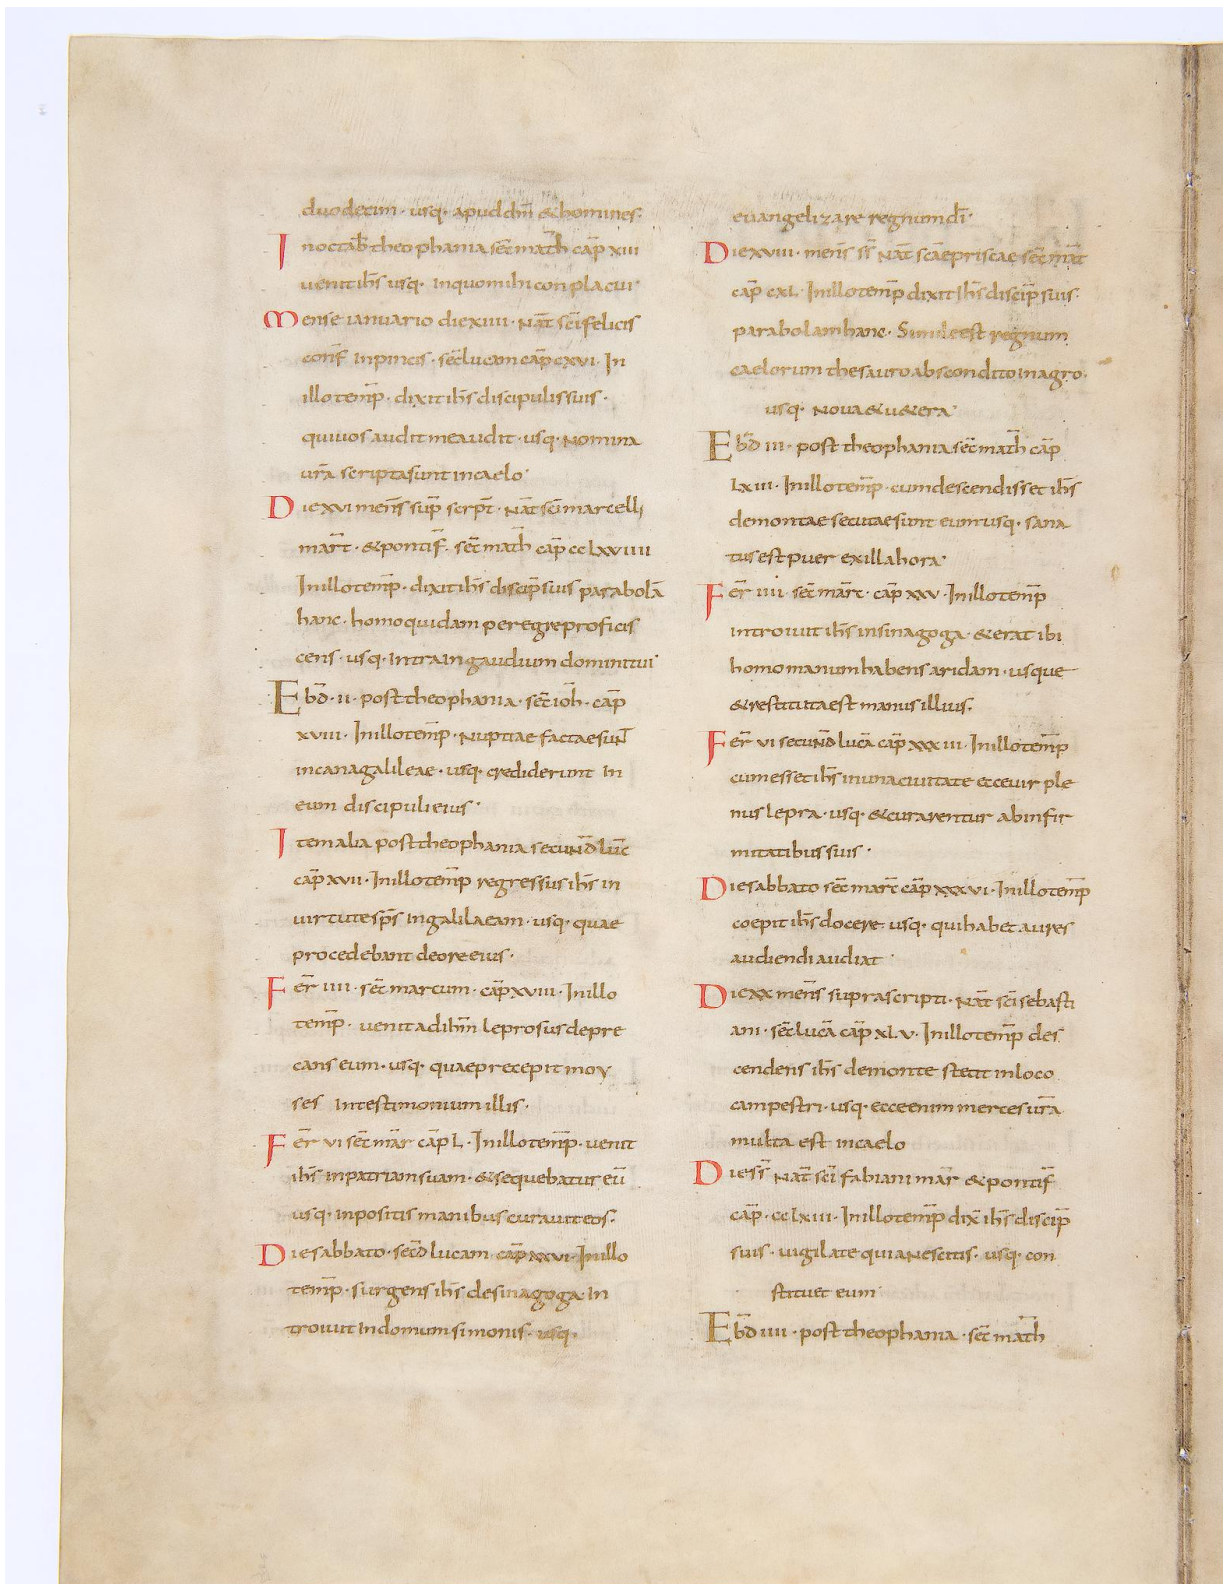 duodecim · usq· apud dm̄ & homines·
In octab̄ theophania sec̄ math̄ cap̄ xiii
uenit ihs̄ usq· in quo mihi conplacui·
Mense ianuario die xiiii · Nat̄ sc̄i felicis
conf̄ in pincis · sec̄ lucam cap̄ cxvi · In
illo temp̄ · dixit ihs̄ discipulis suis ·
qui uos audit me audit · usq· Nomina
ur̄a scripta sunt in caelo·
Die xvi mens̄ sup̄ scrpt̄ · Nat̄ sc̄i marcelli
mart̄ · & pontif̄ · sec̄ math̄ cap̄ cclxviiii
In illo temp̄ · dixit ihs̄ discip̄ suis parabolā
hanc · homo quidam peregre proficis
cens · usq· intra in gaudium domini tui·
Ebd̄ · ii · post theophania · sec̄ ioh̄ · cap̄
xviii · In illo temp̄ · Nuptiae factae sunt
in cana galileae · usq· crediderunt in
eum discipuli eius ·
Item alia post theophania secund̄ luc̄
cap̄ xvii · In illo temp̄ regressus ihs̄ in
uirtute sps̄ in galilaeam · usq· quae
procedebant de ore eius ·
Fer̄ iiii · sec̄ marcum · cap̄ xviii · In illo
temp̄ · uenit ad ihm̄ leprosus depre
cans eum · usq· quae precepit moy
ses in testimonium illis ·
Fer̄ vi sec̄ mar̄ cap̄ L · In illo temp̄ · uenit
ihs̄ in patriam suam · & sequebatur eū
usq· inpositis manibus curauit eos ·
Die sabbato · secd̄ lucam cap̄ xxvi · In illo
temp̄ · surgens ihs̄ de sinagoga in
troiuit in domum simonis · usq·
euangelizare regnum dī·
Die xviii · mens̄ ss̄ Nat̄ scāe priscae sec̄ mat̄
cap̄ cxl · In illo temp̄ dixit ihs̄ discip̄ suis·
parabolam hanc · Simile est regnum
caelorum thesauro abscondito in agro·
usq· Noua & u&era·
Ebd̄ iii · post theophania sec̄ math̄ cap̄
Lxiii · In illo temp̄ · cum descendisset ihs̄
de montae secutae sunt eum usq· sana
tus est puer ex illa hora·
Fer̄ iiii · sec̄ marc̄ · cap̄ xxv · In illo temp̄
introiuit ihs̄ in sinagoga · & erat ibi
homo manum habens aridam · usque
& restituta est manus illius·
Fer̄ vi secund̄ lucā cap̄ xxxiii · In illo temp̄
cum esset ihs̄ in una ciuitate ecce uir ple
nus lepra · usq· & curarentur ab infir
mitatibus suis ·
Die sabbato sec̄ marc̄ cap̄ xxxvi · In illo temp̄
coepit ihs̄ docere usq· qui habet aures
audiendi audiat ·
Die xx mens̄ suprascripti · Nat̄ sc̄i sebasti
ani · sec̄ lucā cap̄ xLv · In illo temp̄ des
cendens ihs̄ de monte stetit in loco
campestri · usq· ecce enim merces ur̄a
multa est in caelo
Die ss̄ Nat̄ sc̄i fabiani mar̄ & pontif̄
cap̄ · cclxiii · In illo temp̄ dix̄ ihs̄ discip̄
suis · uigilate quia Nescitis · usq· con
stituet eum·
Ebd̄ iiii · post theophania · sec̄ math̄